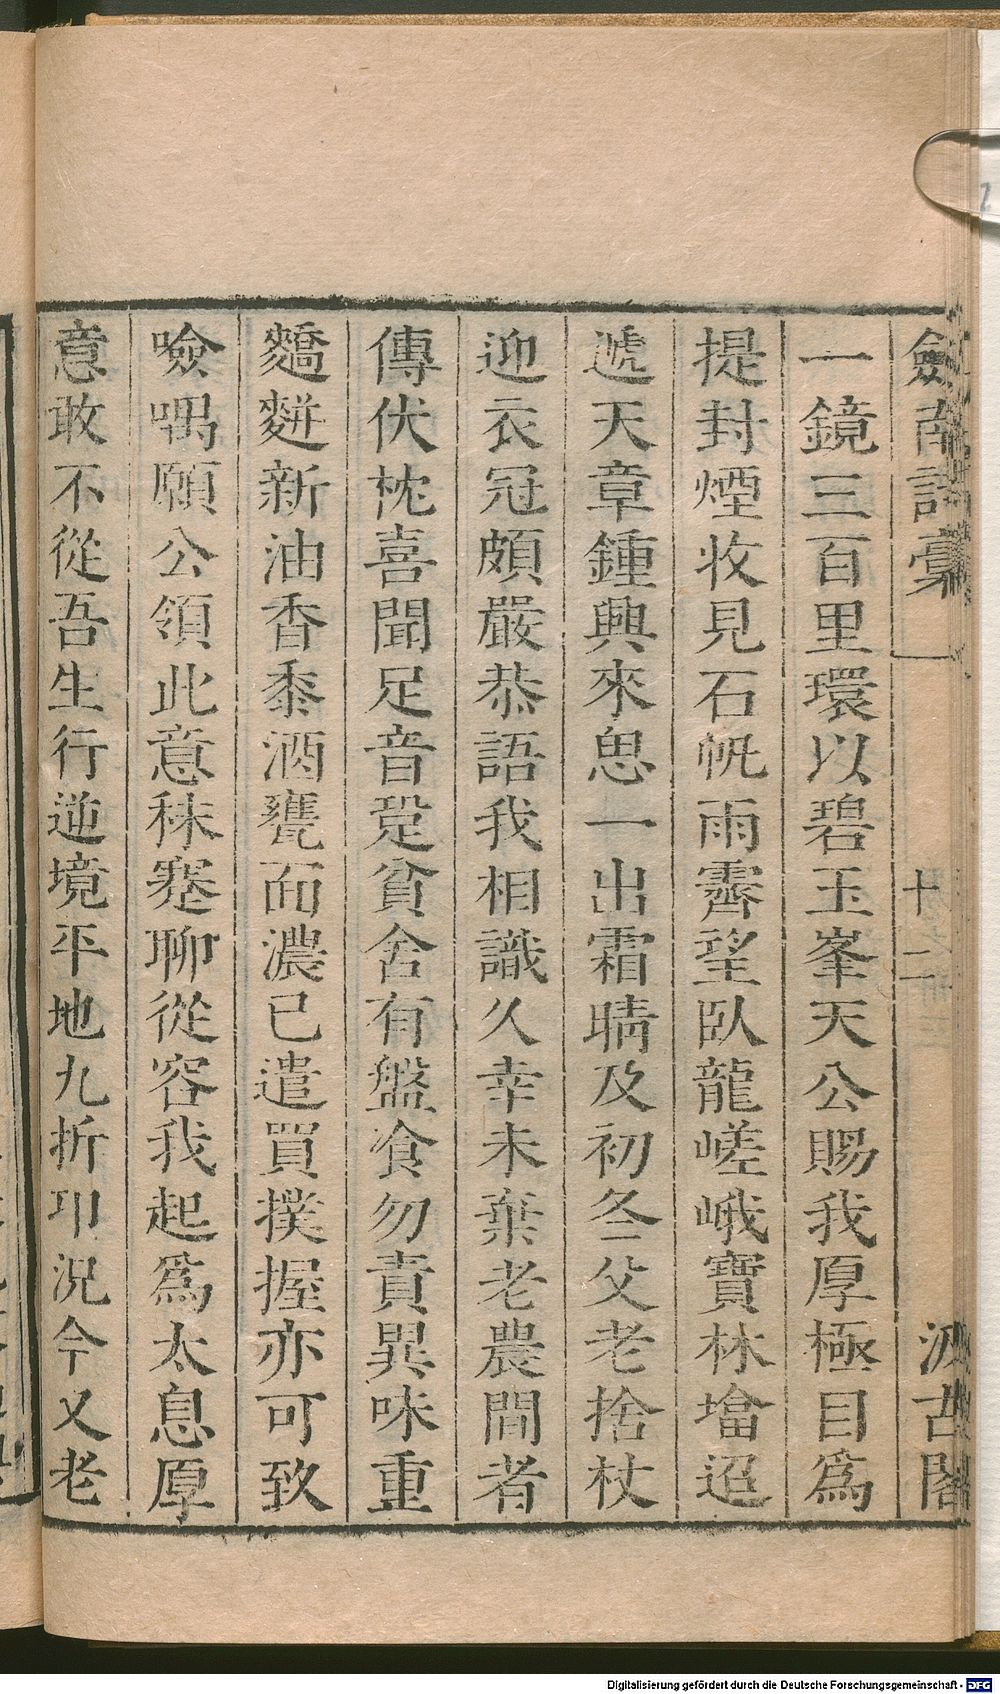 劍南詩稾 一 十二 汲古閣
一鏡三百里環以碧玉峯天公賜我厚極目爲
提封煙收見石帆雨霽望臥龍嵯峨寶林㙮迢
遞天章鍾興來思一出霜晴及初冬父老捨杖
迎衣冠頗嚴恭語我相識久幸未棄老農間者
傳伏枕喜聞足音跫貧舍有盤飡勿責異味重
䴔䴵新油香黍酒甕面濃已遣買撲握亦可致
噞喁願公領此意秣蹇聊從容我起爲太息厚
意敢不從吾生行逆境平地九折卭況今又老
Digitalisierung gefördert durch die Deutsche Forschungsgemeinschaft - DFG